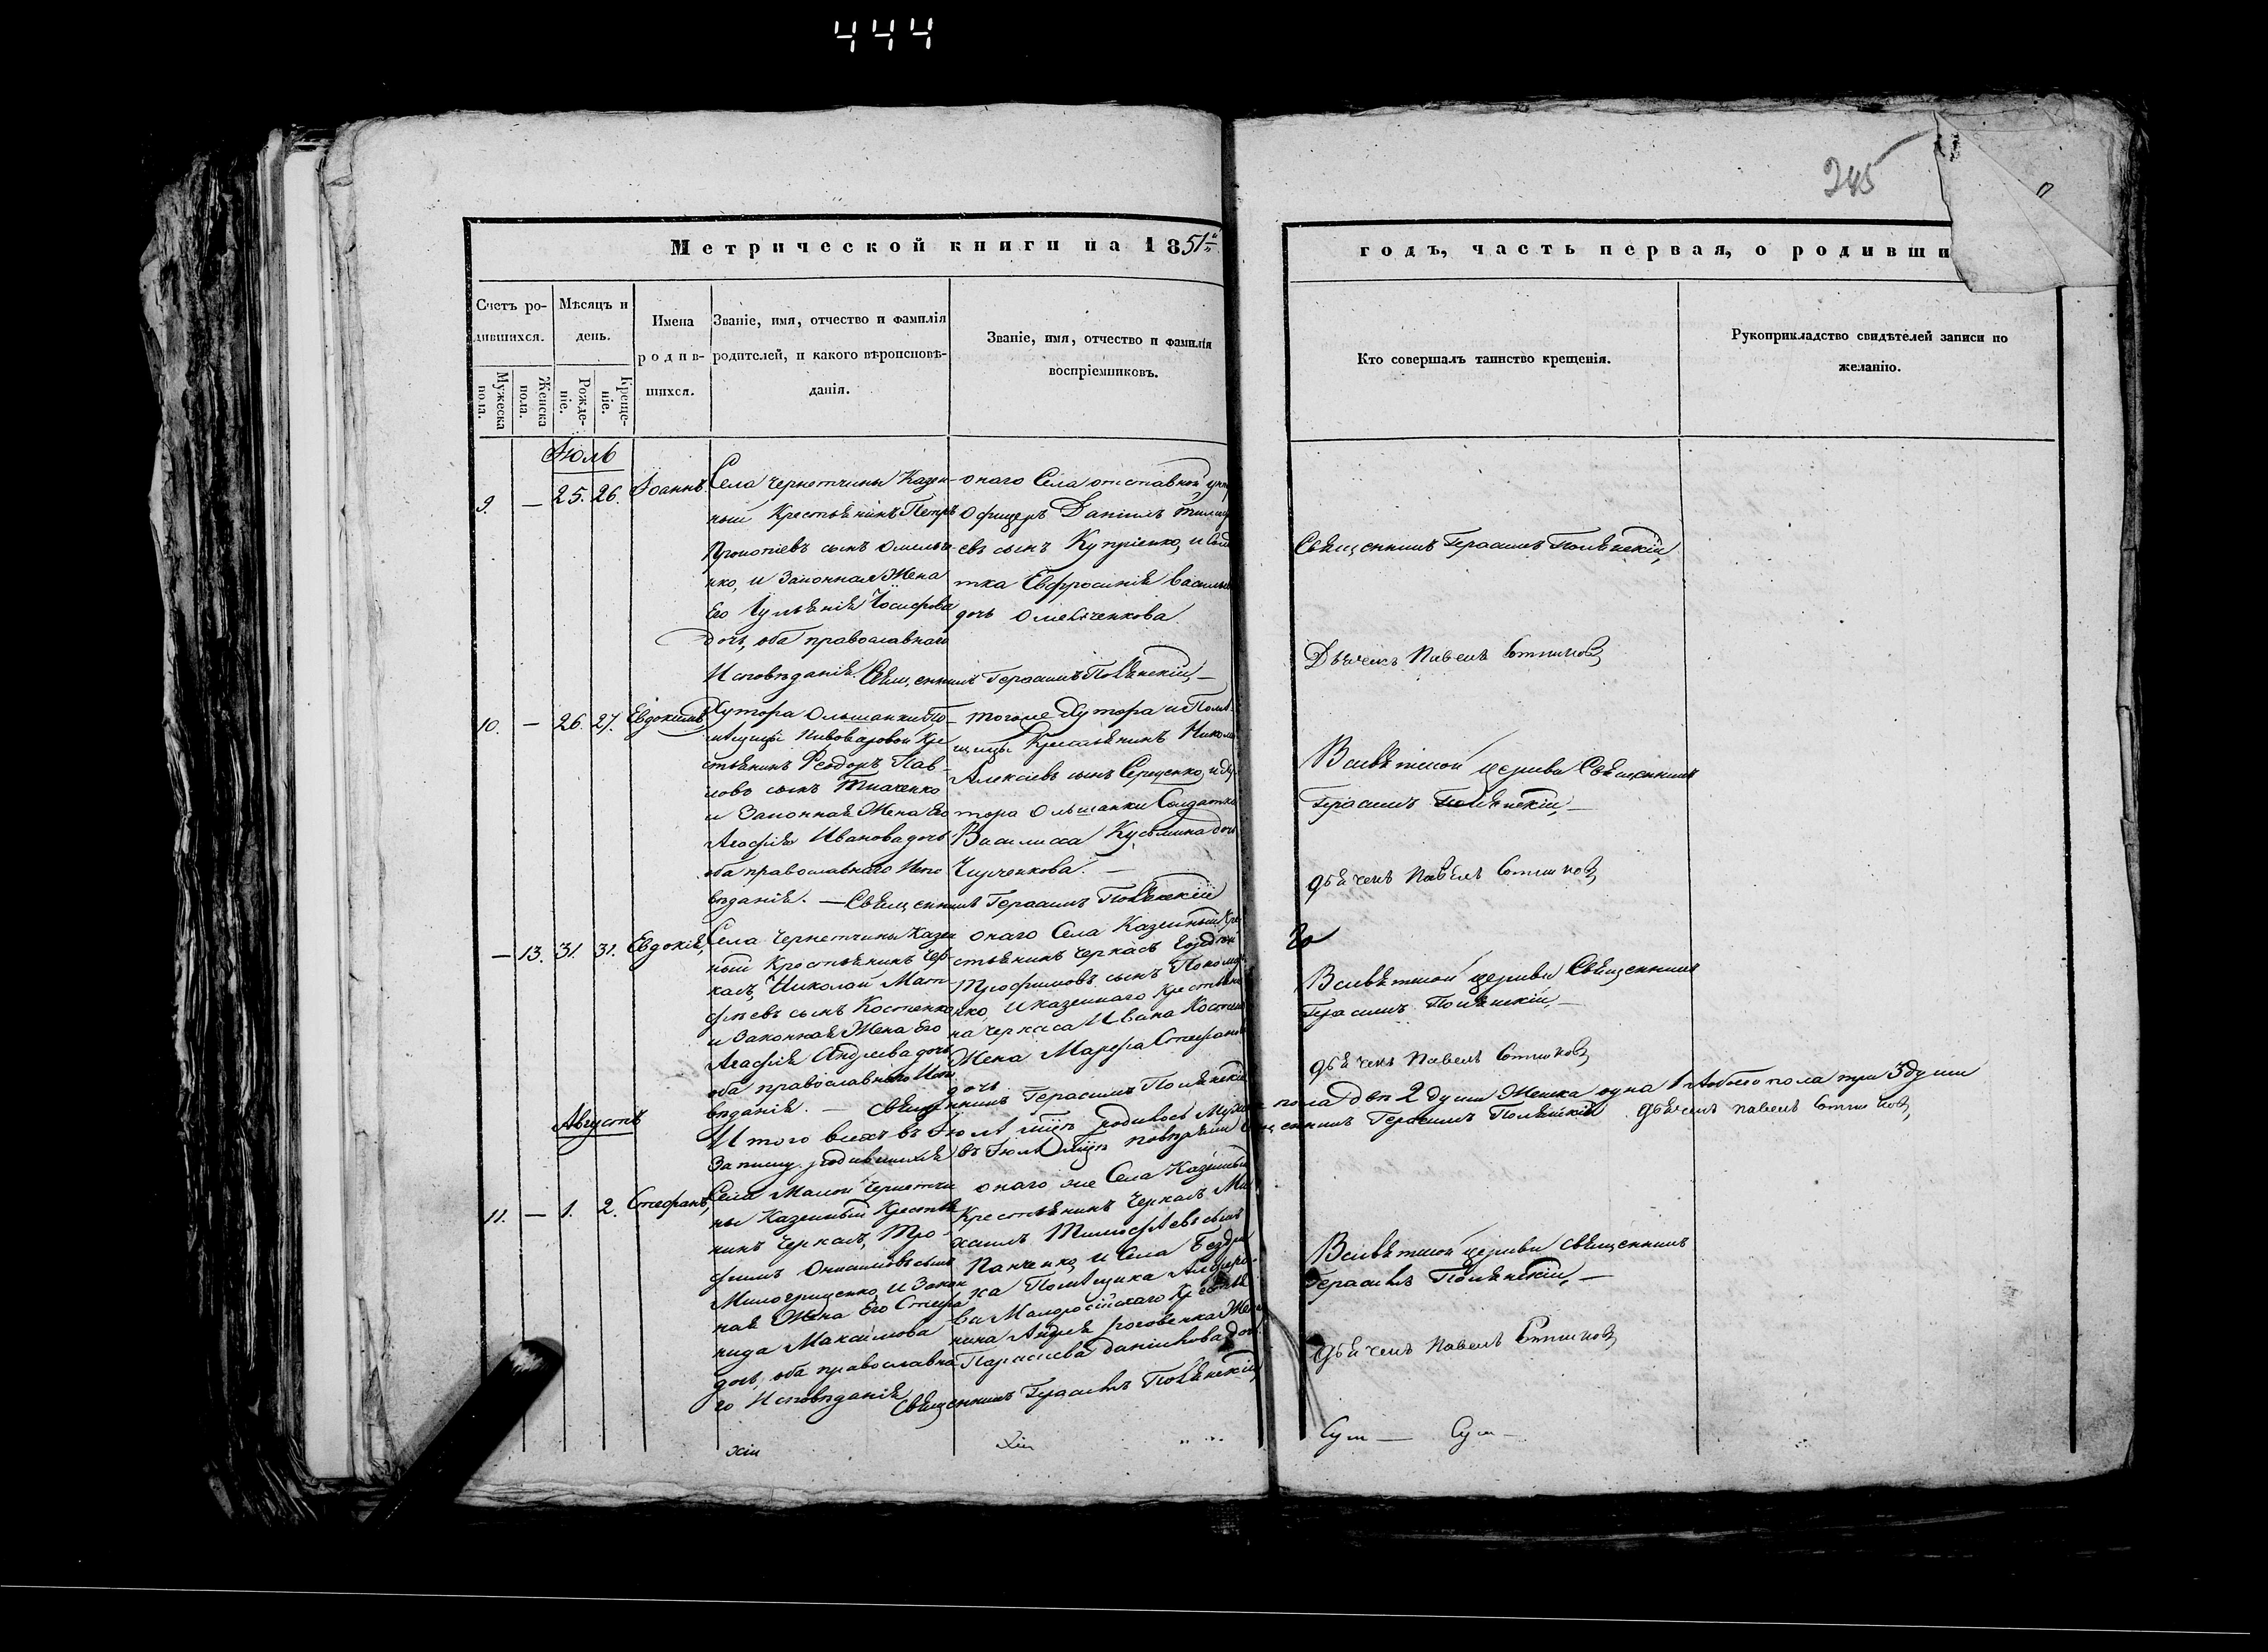 444
245
Метрической книги на 1851й
годъ, часть первая, о родивши
Счетъ ро-
дившихся.
Мужеска пола.
Женска пола.
Мѣсяцъ и
день.
Рожде-
ніе.
Креще-
ніе.
Имена
родив-
шихся.
Званіе, имя, отчество и фамилія
родителей, и какого вѣроисповѣ-
данія.
Званіе, имя, отчество и фамилія
воспріемниковъ.
Кто совершалъ таинство крещенія.
Рукоприкладство свидѣтелей записи по
желанію.
Іюль
9. — 25. 26. Іоаннъ
Села Чернетчины Казен-
ный Крестьянинъ Петръ
Прокопіевъ сынъ Омельче-
нко, и Законная Жена
Его Іульянія Іосифова
дочь, оба православнаго
Исповѣданія. Священникъ Герасимъ Полянскій —
онаго Села отставной
Офицеръ Даніилъ
евъ сынъ Купріенко, и
тка Евфросинія
дочь Омельченкова.
Священникъ Герасимъ Полянскій,
Дьячекъ Павелъ Сотниковъ
10. — 26. 27. Евдокимъ
Хутора Ольшанки По-
мѣщицы Пивоваровой Кре
стьянинъ Феодоръ Пав-
ловъ сынъ Ткаченко
и Законная Жена Его
Агафія Иванова дочь
оба православнаго Испо
вѣданія. — Священникъ Герасимъ Полянскій
тогоже Хутора и Помѣ
щицы Крестьянинъ
Алексіевъ сынъ и Ху
тора Ольшанки Солдатка
Василиса Кузьмина дочь
Вслѣтшой церкви Священникъ
Герасимъ Полянскій, —
дьячекъ Павелъ Сотниковъ
— 13. 31. 31. Евдокія,
Села Чернетчины Казен
ный Крестьянинъ Чер-
касъ, Николай Мат-
фѣевъ сынъ Костенко
и Законная Жена Его
Агафія Андреева дочь
оба православнаго Испо
вѣданія. — Священникъ Герасимъ Полянскій
онаго Села Казенный Кре
стьянинъ Черкасъ
Трофимовъ сынъ
нко, и казеннаго Крестьяни
на Черкаса Ивана
Жена Марфа Стефанова
дочь
Священникъ
Герасимъ Полянскій, —
дьячекъ Павелъ Сотниковъ
Итого всехъ въ Іюлѣ мцѣ родилось Муж. пола двѣ 2 души Женска одна 1 Аобоего пола три 3 души
родившихся въ Іюлѣ мцѣ Священникъ Герасимъ Полянскій дьячекъ Павелъ Сотниковъ,
Августъ
11. — 1. 2. Стефанъ,
Села Малой Чернетчи
ны Казенный Крестья
нинъ Черкасъ, Тро-
фимъ Онисимовъ сынъ
и Закон
ная Жена Его Стефа
нида Максимова
дочь, оба православна
го Исповѣданія
Священникъ Герасимъ Полянскій
онаго же Села Казенный
Крестьянинъ Черкасъ Ми
хаилъ Тимофѣевъ сынъ
Панченко, и Села Бездри
ка Помѣщика
ва Малоросійскаго Крестья
нина Андрея Жена
Параскева Даніилова дочь
Священникъ
Герасимъ Полянскій, —
дьячекъ Павелъ Сотниковъ